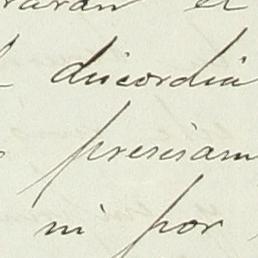 el
discordia
precisam
ni por